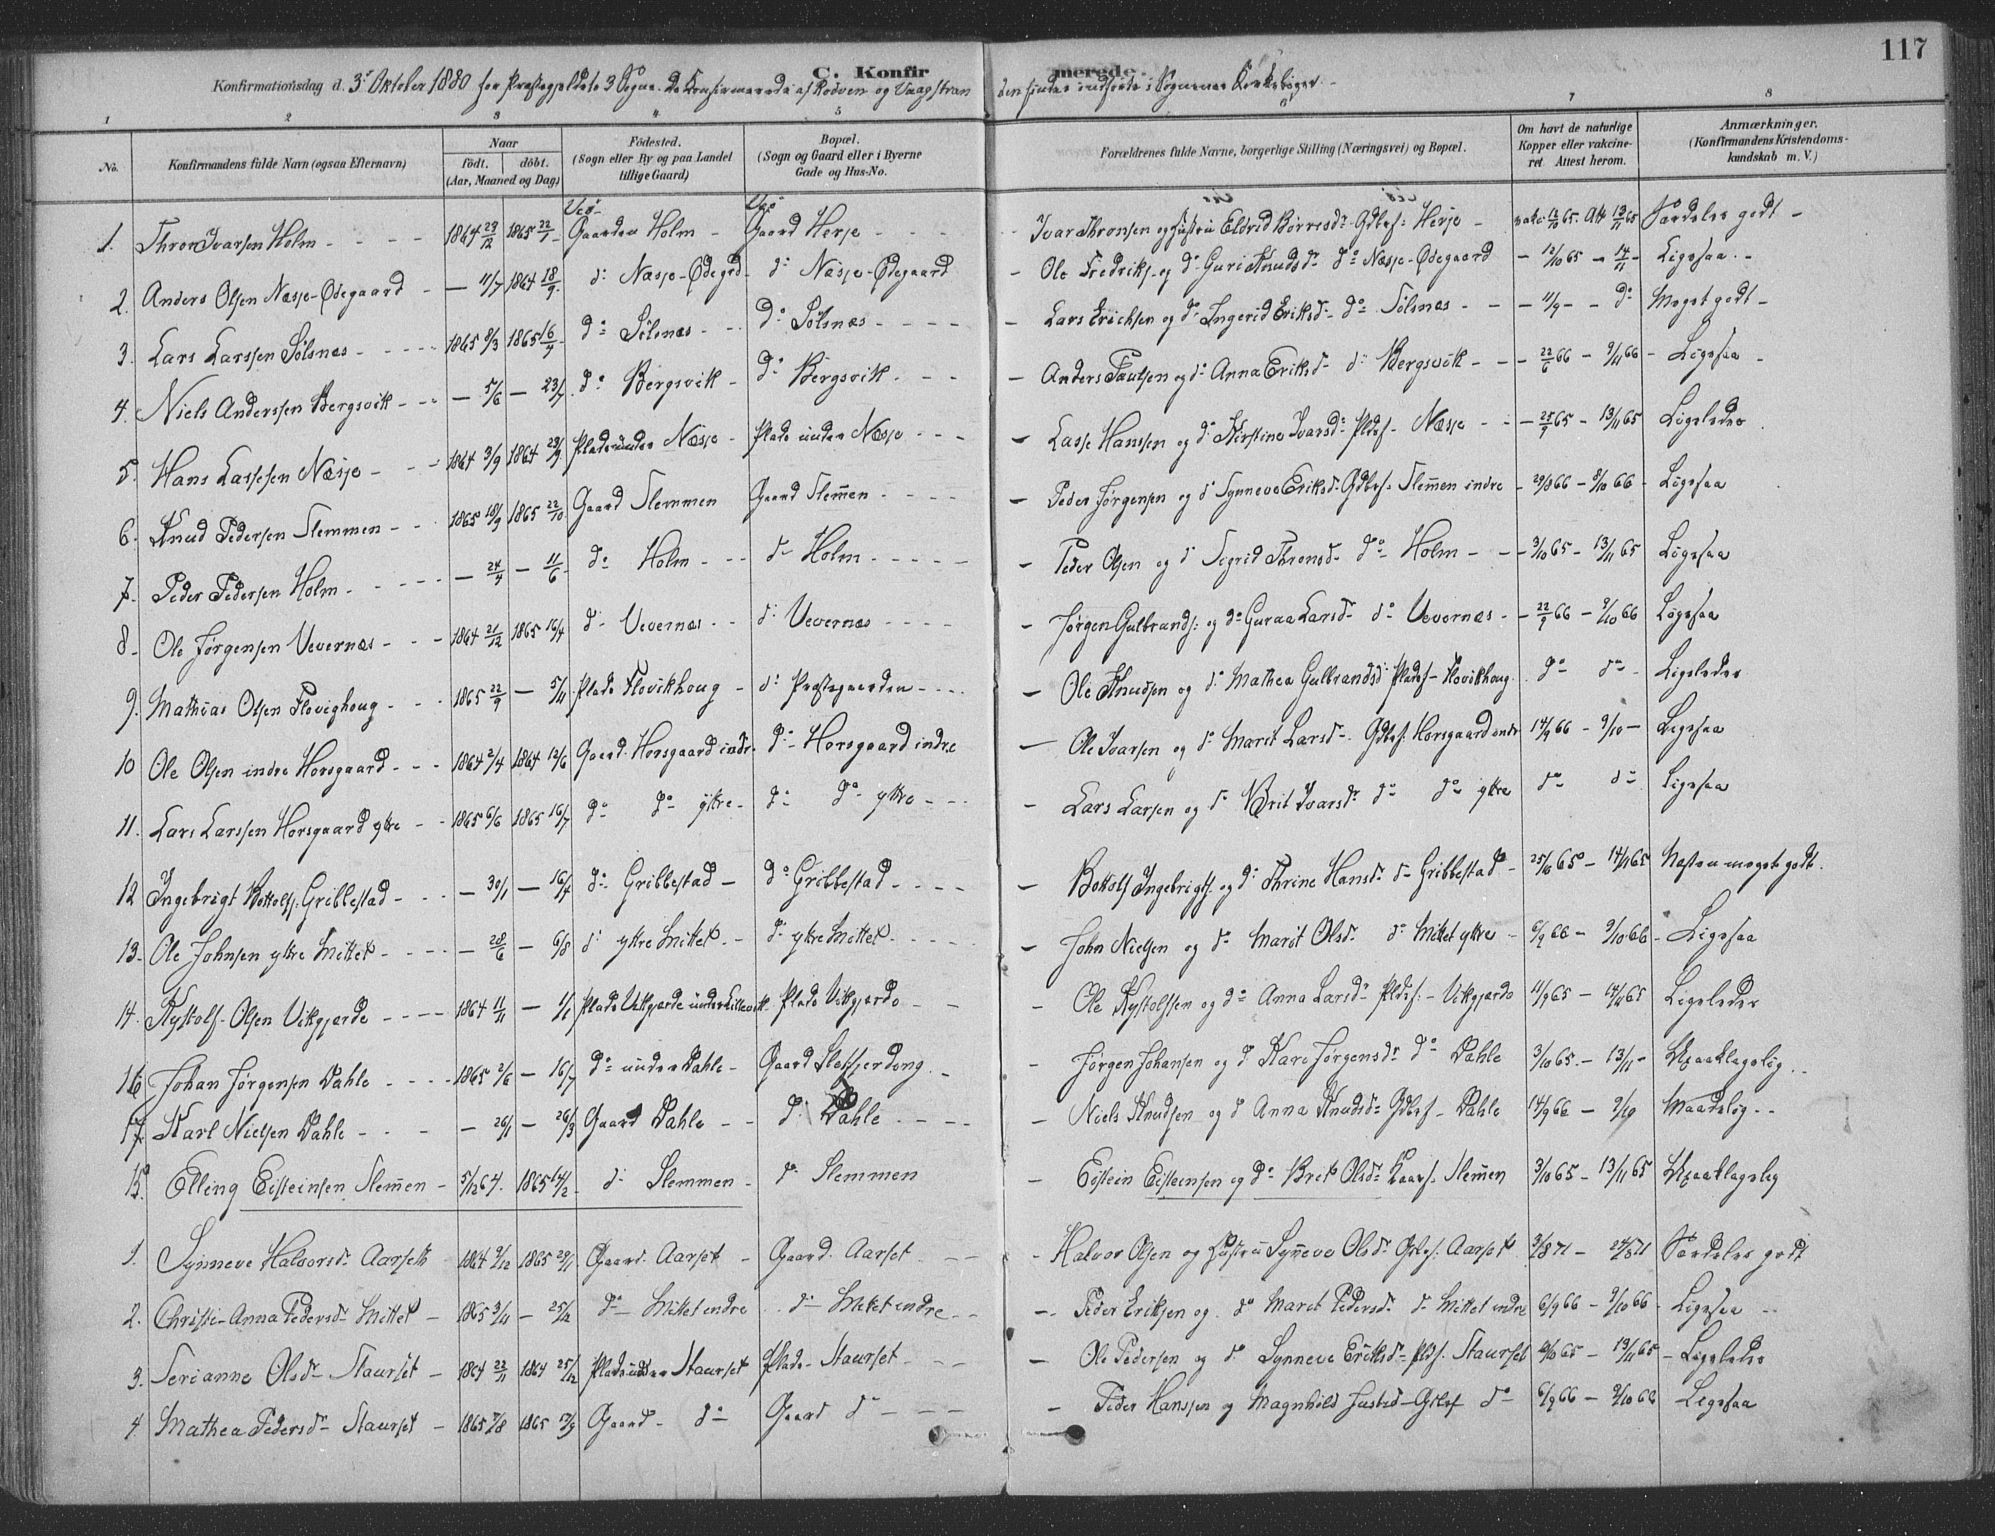 117
C. Konfirmerede.
Konfirmationsdag d. 3' Oktober 1880 for Præstegjeldets 3 Sogne. De Konfirmerede af Rødven og Vaagstranden findes indførte i Sognenes Kirkebøger.
1 2 3 4 5 6 7 8
No. Konfirmandens fulde Navn (ogsaa Efternavn) Naar født. døbt. (Aar, Maaned og Dag) Fødested. (Sogn eller By og paa Landet tillige Gaard) Bopæl. (Sogn og Gaard eller i Byerne Gade og Hus-No. Forældrenes fulde Navne, borgerlige Stilling (Næringsvei) og Bopæl. Om havt de naturlige Kopper eller vakcineret Attest herom. Anmærkninger. (Konfirmandens Kristendomskundskab m. V.)
1. Thron Ivarsen Holm 1864 23/12 1865 22/1 Veø Gaarden Holm Veø Gaard Herje Ivar Thronsen og Hustru Eldrid Børresdr Gdbrf: Herje vakc 14/10 65. Att 13/11 65 Særdeles godt
2. Anders Olsen Næsje-Ødegaard 11/7 1864 18/9 d: Næsje-Ødegrd d: Næsje-Ødegaard Ole Fredriks. og do Guri Knudsdr do Næsje-Ødegaard 12/10 65 14/11 Ligesaa
3. Lars Larssen Sølsnæs 1865 8/3 1865 16/4 do Sølsnæs do Sølsnæs Lars Erichsen og do Ingerid Eriksdr do Sølsnæs 11/9 do Meget godt
4. Niels Anderssen Bergsvik 5/6 23/7 do Bergsvik do Bergsvik Anders Paulsen og do Anna Eriksdr d: Bergsvik 22/6 66 9/11 66 Ligesaa
5. Hans Lassesen Næsje 1864 3/9 1864 29/9 Plads under Næsje Plads under Næsje Lasse Hansen og do Kirstine Ivarsdr Pldsf Næsje 25/9 65 13/11 65 Ligeledes
6. Knud Pedersen Slemmen 1865 18/9 1865 22/10 Gaard Slemmen Gaard Slemen Peder Jørgensen og d Synneve Eriksdr Gdbrf Slemen indre 29/8 66 8/10 66 Ligesaa
7. Peder Pedersen Holm 24/4 11/6 do Holm d Holm Peder Olsen og d Sigrid Thronsdr do Holm 3/10 65 13/11 65 Ligesaa
8. Ole Jørgensen Vevernæs 1864 21/12 1865 16/4 d Vevernæs d: Vevernæs Jørgen Gulbrands: og do Guraa Larsdr do Vevernæs 22/9 66 9/10 66 Ligesaa
9. Mathias Olsen Flovighoug 1865 22/9 5/11 Plads Flovikhoug d: Præstegaarden Ole Knudsen og d: Mathea Gulbrandsd Pldsf Flovikhoug do do Ligeledes
10 Ole Olsen indre Horsgaard 1864 2/4 1864 12/6 Gaard Horsgaard indr. do Horsgaard indre Ole Ivarsen og d: Marit Larsdr Gdbrf Horsgaard indr 14/9 66 9/10 Ligesaa
11. Lars Larssen Horsgaard ytre 1865 6/6 1865 16/7 do do ytre do do ytre Lars Larsen og do Brit Ivarsdr do do ytre do do Ligesaa
12 Ingebrigt Bottolfs. Gribbestad 30/1 16/4 do Gribbestad do Gribbestad Bottolf Ingebrigts. og d: Thrine Hansdr do Gribbestad 25/10 65 14/11 65 Næsten meget godt.
13. Ole Johnsen ytre Mittet 28/6 6/8 d: ytre Mittet d: ytre Mittet John Nielsen og do Marit Olsdr do Mittet ytre 6/9 66 9/10 66 Ligesaa
14. Kystolf Olsen Vikgjerde 1864 11/11 1/1 Plads Vikgjerde under Lillevik Plads Vikgjerde Ole Kystolfsen og do Anna Larsdr Pldsf: Vikgjerde 11/9 65 14/11 65 Ligeledes
16 Johan Jørgensen Dahle 1865 2/6 16/7 do under Dahle Gaard Jørgen Johansen og d: Kari Jørgensdr do Dahle 3/10 65 13/11 Upaaklagelig
17. Karl Nielsen Dahle 26/1 26/3 Gaard Dahle d: Dahle Niels Knudsen og d Anna Knudsdr Gdbrf Dahle 14/9 66 9/10 Maadelig
15. Elling Eisteinsen Slemen 5/12 64. 1865 14/2 d: Slemmen do Slemmen Eistein Eisteinsen og do Brit Olsdr Slemen 3/10 65 13/11 65 Upaaklagelig
1. Synneve Halvorsdr Aarseth 1864 9/12 1865 29/1 Gaard Aarset Gaard Aarset Halvor Olsen og Hustru Synneve Olsdr Gdbrf. Aarset 3/8 71 Særdeles godt
2. Christi-Anna Pedersdr Mittet 1865 3/11 25/12 do Mittet indre do Mittet indre Peder Eriksen og do Marit Pedersdr do Mittet indre 6/9 66 9/10 66 Ligesaa
3. Serianne Olsdr Staurset 1864 22/11 1864 25/12 Plads under Staurset Plads Staurset Ole Pedersen og do Synneve Eriksdr Pldsf. Staurset 13/11 65 Ligeledes
4 Mathea Pedersdr Staurset 1865 7/8 1865 17/9 Gaard do Gaard do Peder Hanssen og Magnhild Gdbrf do 6/9 66 9/10 66 Ligesaa